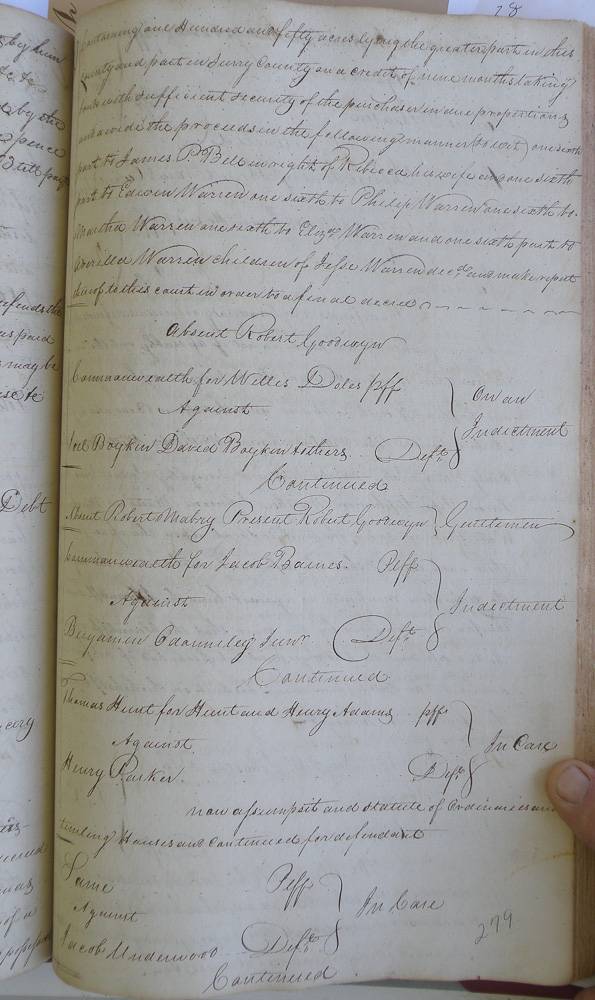 28
Containing one Hundred and fifty acres lying the greater part in this
County and part in Surry County on a credit of nine months taking
bonds with sufficient security of the purchaser in due proportions
and divide the proceeds in the following manner (to wit) one sixth
part to James P. Bell in right of Rebecca his wife and one sixth
part to Edwin Warren one sixth to Philip Warren one sixth to
Warren one sixth to Elizath Warren and one sixth part to
Warren children of Jesse Warren decd and make report
thereof to this court in order to a final decree
Absent Robert Goodwyn
Commonwealth for Willis Doles pff
Against
On an
Indictment
Joel Boykin David Boykin & others Defts
Continued
Absent Robert Mabry Present Robert Goodwyn Gentlemen
Commonwealth for Jacob Barnes. Plff
Against
Indictment
Benjamin Junr Deft
Continued
Thomas Hunt for Hunt and Henry Adams pff
Against
In Case
Henry Parker. Deft
non assumpsit and statute of Ordinaries and
tipling Houses and Continued for defendant
Same Plff
Against
In Case
Jacob Underwood Deft
Continued
279
by him
&c &c
d by the
pence
till paid
defends the
paid
may be
Debt
of a